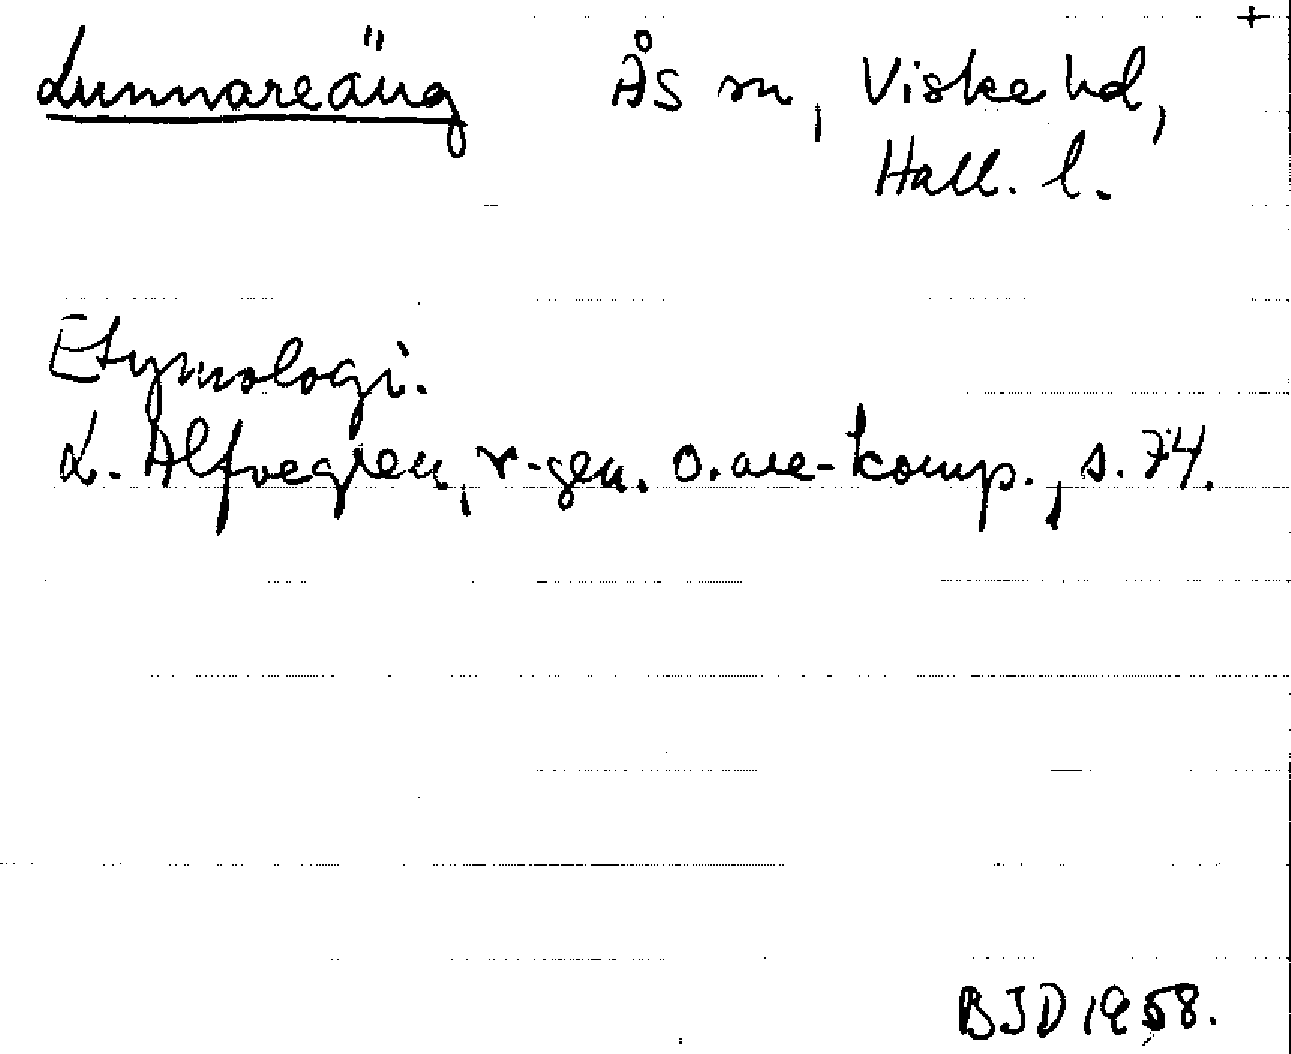 +
Lunnareäng Ås sn, Viske hd,
Hall. l.
Etymologi.
L. Alfvegren, r-gen. o. are-komp., s. 74.
BJD 1958.